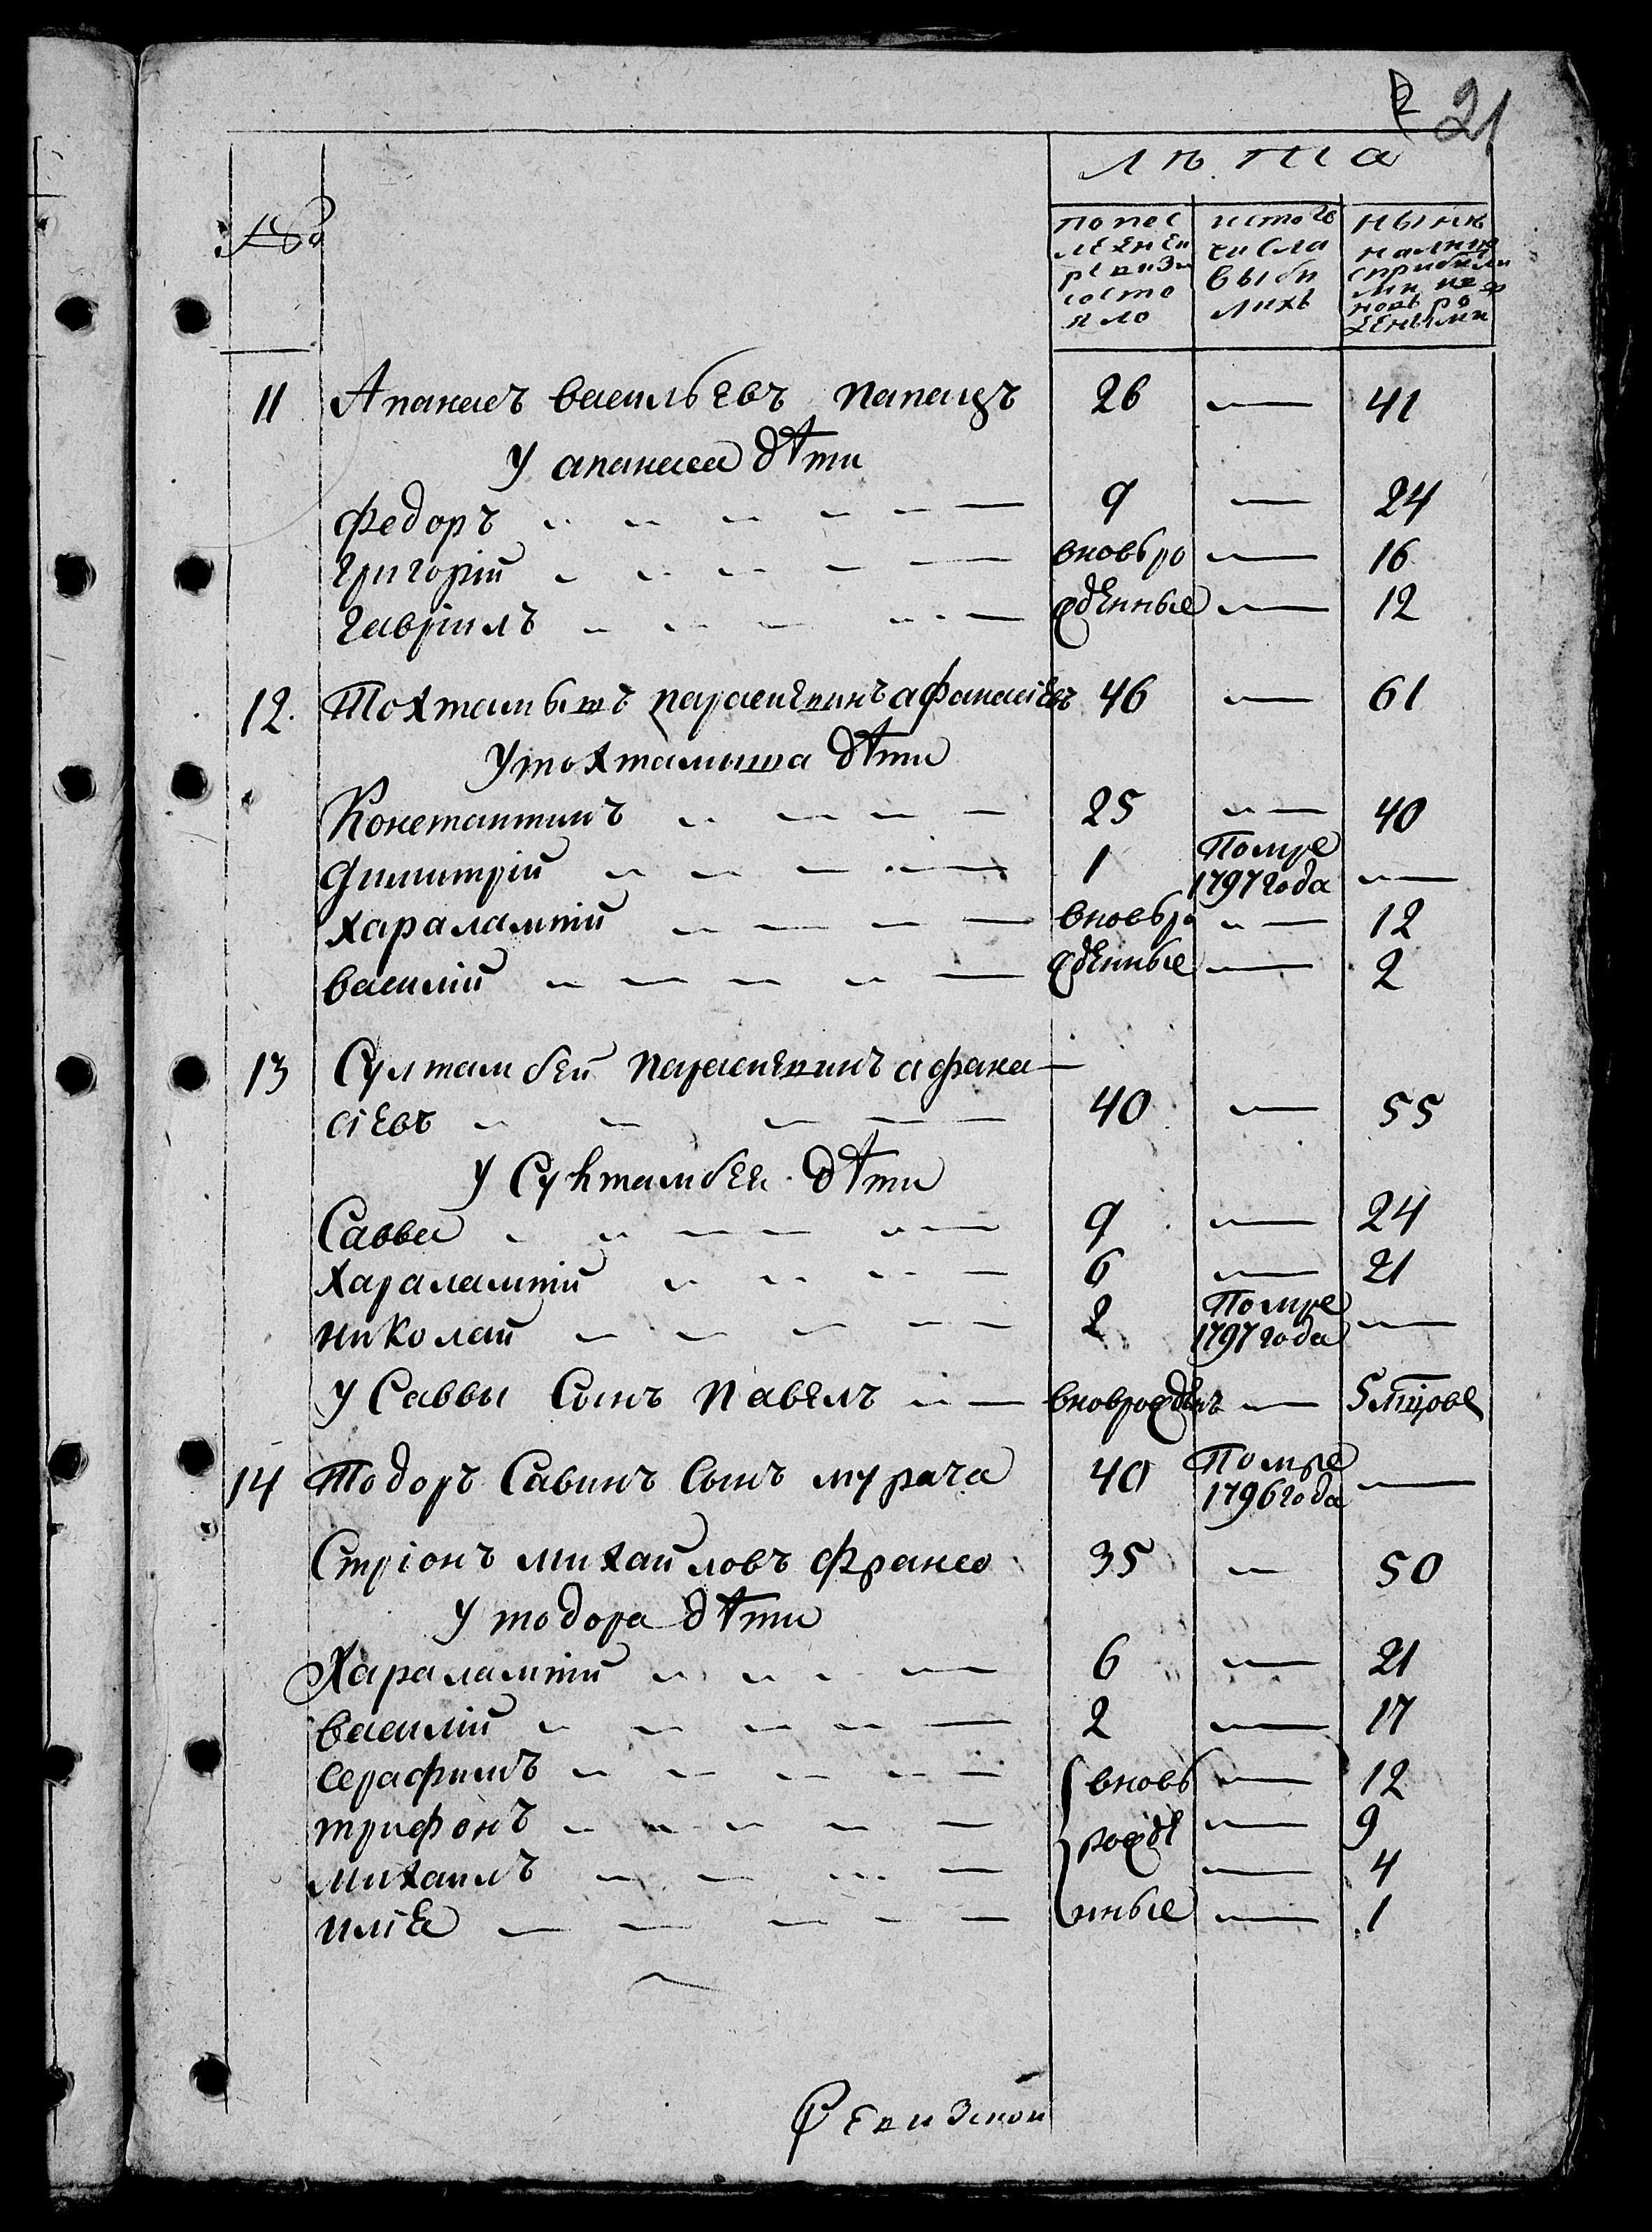 21
лѣта
№
по пос
лѣдней
ревизи
состо
яло
ис того
числа
выбы
лихъ
нынѣ
налицо
11 Апанасъ васильевъ 26 — 41
У апанаса дѣти
федоръ — 9 — 24
григорій — вновь ро — 16
гавріилъ — жденные — 12
12. Тохтамышъ парасъкѣвинъ афанасіевъ 46 — 61
У тохтамыша дѣти
Константинъ — 25 — 40
Димитрій — 1 Помре
1797 года —
харалампій — вновь ро — 12
василій — жденные — 2
13 Султамбей парасъкѣвинъ афана—
сіевъ — 40 — 55
У Султамбея дѣти
Савва — 9 — 24
харалампій — 6 — 21
николай — 2 Помре
1797 года —
У Саввы Сынъ павелъ — вноврожденъ — 5 мцове
14 Тодоръ Савинъ Сынъ мурача 40 Помре
1796 года —
Стріонъ михайловъ 35 — 50
У тодора дѣти
Харалампій — 6 — 21
василій — 2 — 17
серафимъ — вновь — 12
трифонъ — рожде — 9
михаилъ — 4
иліа — нные — 1
Ревизской